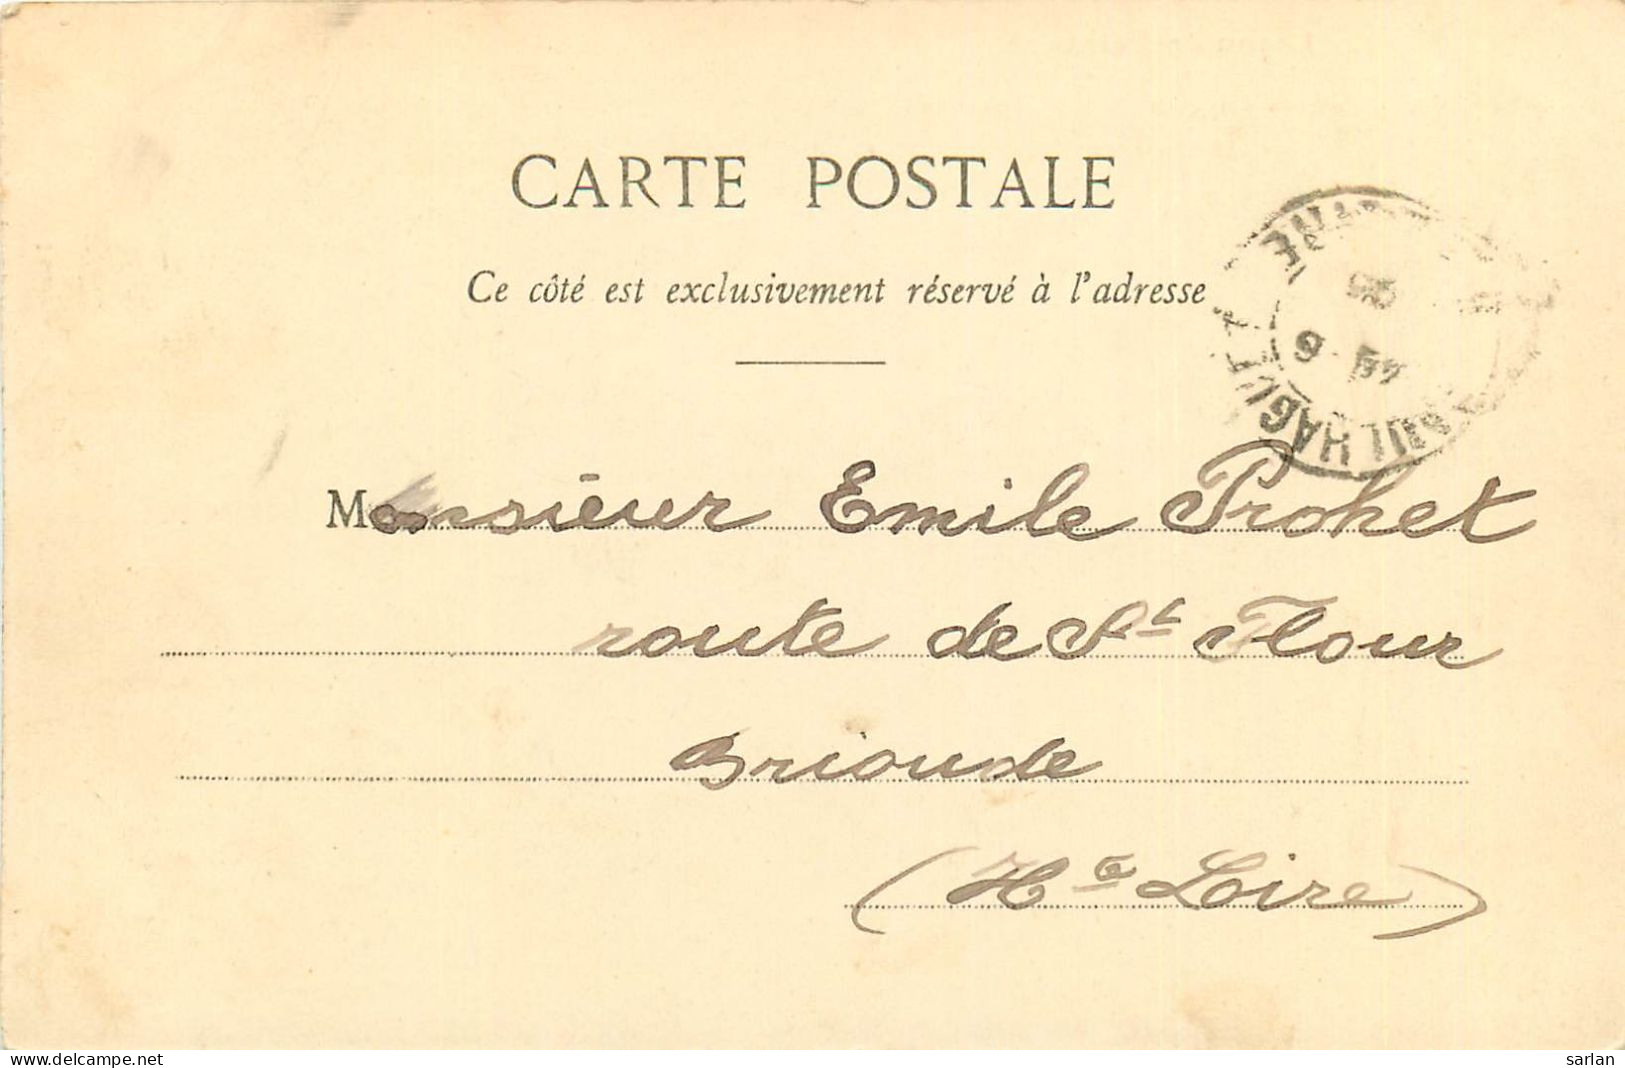 CARTE POSTALE
Ce côté est exclusivement réservé à l'adresse
Monsieur Emile Prohet
route de St Flour
Brioude
(Hte Loire)
delcampe.net
sarlan